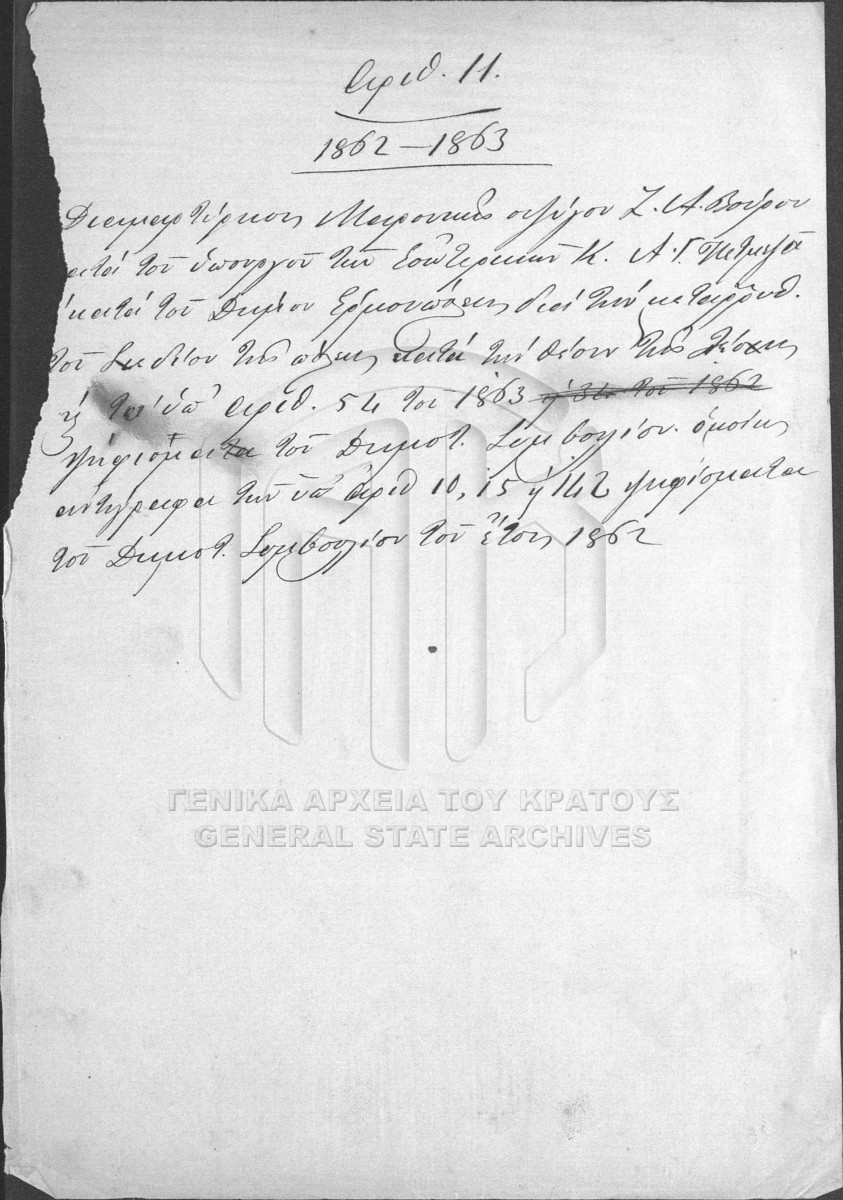 Αριθ. 11.
1862 – 1863
Διαμαρτύρησις Μαριουκας συζύγου Ζ. Α. Βούρου
κατά του υπουργού των Εσωτερικών Κ. Α. Γ. Πετμεζά
κατά του Δήμου Ερμουπόλεως διά την καταρρυθ.
του Σχεδίου της πόλεως κατά την θέσιν της Λέσχης
ή το υπ' αριθ. 54 του 1863 ή 34 του 1862
ψήφισμα του Δημοτ. Συμβουλίου. ομοίως
αντίγραφα των υπ' αριθ 10, 15 ή 142 ψηφίσματα
του Δημοτ. Συμβουλίου του έτους 1862
ΓΕΝΙΚΑ ΑΡΧΕΙΑ ΤΟΥ ΚΡΑΤΟΥΣ
GENERAL STATE ARCHIVES